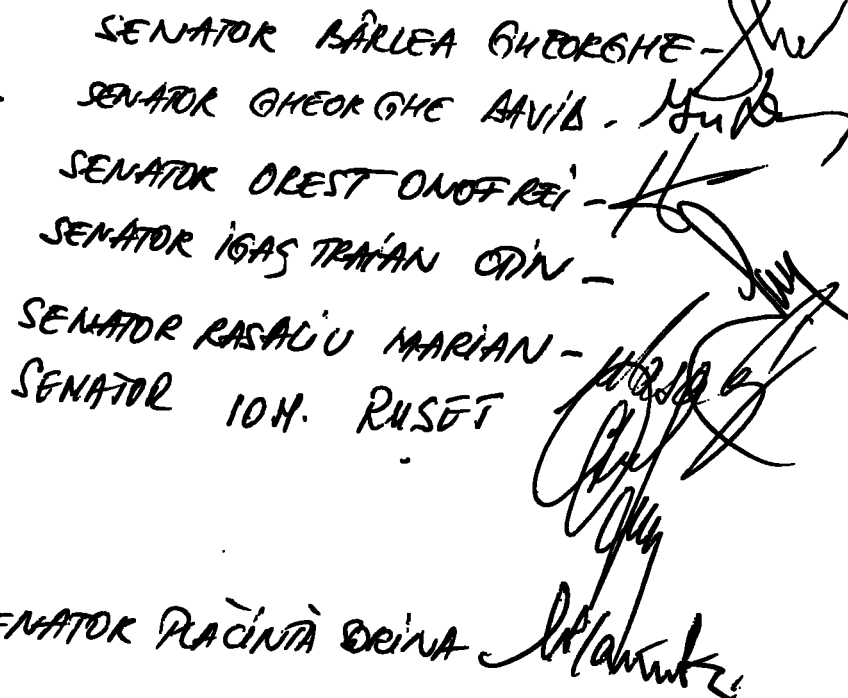 SENATOR BÂRLEA GHEORGHE -
SENATOR GHEORGHE DAVID -
SENATOR OREST ONOFREI -
SENATOR IGAȘ TRAIAN ODIN -
SENATOR RASALIU MARIAN -
SENATOR ION. RUSET
SENATOR PLĂCINTĂ SORINA